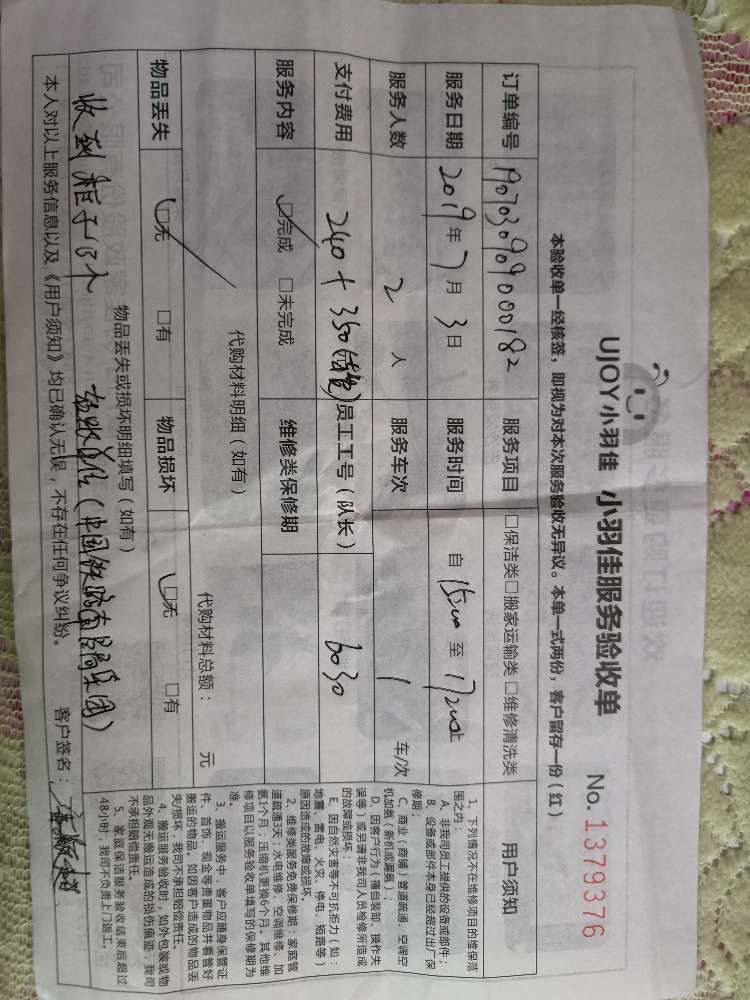 UJOY小羽佳 小羽佳服务验收单
No. 1379376
本验收单一经核签，即视为对本次服务验收无异议。本单一式两份，客户留存一份（红）
订单编号 190703090900182 服务项目 □保洁类□搬家运输类□维修清洗类
服务日期 2019年7月3日 服务时间 自 至
服务人数 2 人 服务车次 1 车/次
支付费用 240+350 员工工号（队长） 6030
服务内容 □完成 □未完成 维修类保修期
代购材料明细（如有） 代购材料总额： 元
物品丢失 □无 □有 物品损坏 □无 □有
物品丢失或损坏明细填写（如有）
收到柜子 个
本人对以上服务信息以及《用户须知》均已确认无误，不存在任何争议纠纷。 客户签名：
用户须知
1、下列情况不在维修项目的维保范
围之内：
A、非我司员工提供的设备或部件；
B、设备或部件本身已经超过出厂保
修期；
C、商业（商铺）管道疏通、空调空
机加氨、新机或漏氨）；
D、因客户行为（擅自装卸、操作失
误等）或另请非我司人员检修所造成
的故障或损坏；
E、因自然灾害等不可抗拒力（如：
地震、雷电、火灾、停电、短路等）
原因造成的故障或损坏。
2、维修类服务免费保修期：家庭管
道疏通3天；水电维修、空调维修、加
氨1个月；压缩机更换6个月，其他维
修项目以服务验收单填写的保修期为
准。
3、搬运服务中，客户应随身保管证
件、首饰、现金等贵重物品并看管好
搬运的物品。如因客户造成的物品丢
失/损坏，我司不承担赔偿责任。
4、搬运服务验收时，如外包装或物
品外观无搬运造成的损伤痕迹，我司
不承担赔偿责任。
5、家庭保洁服务验收结束后超过
48小时，我司不负责上门返工。